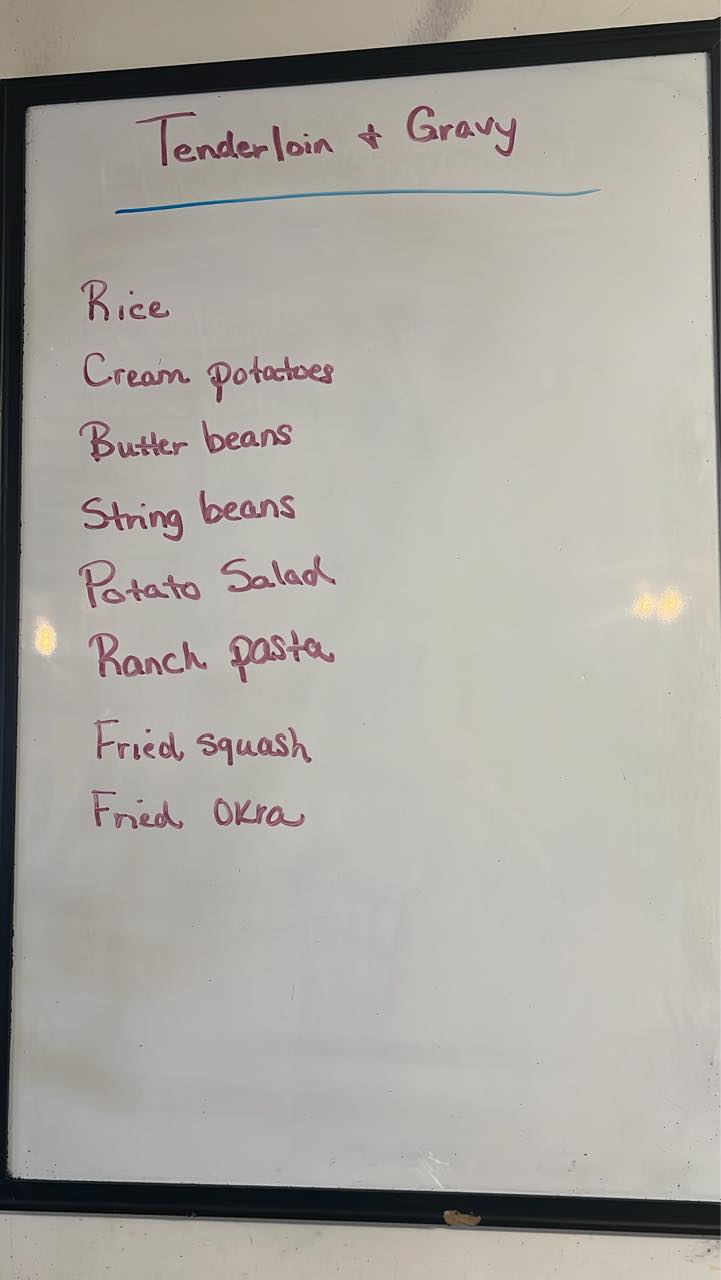 Tenderloin + Gravy
Rice
Cream potatoes
Butter beans
String beans
Potato Salad
Ranch pasta
Fried squash
Fried Okra